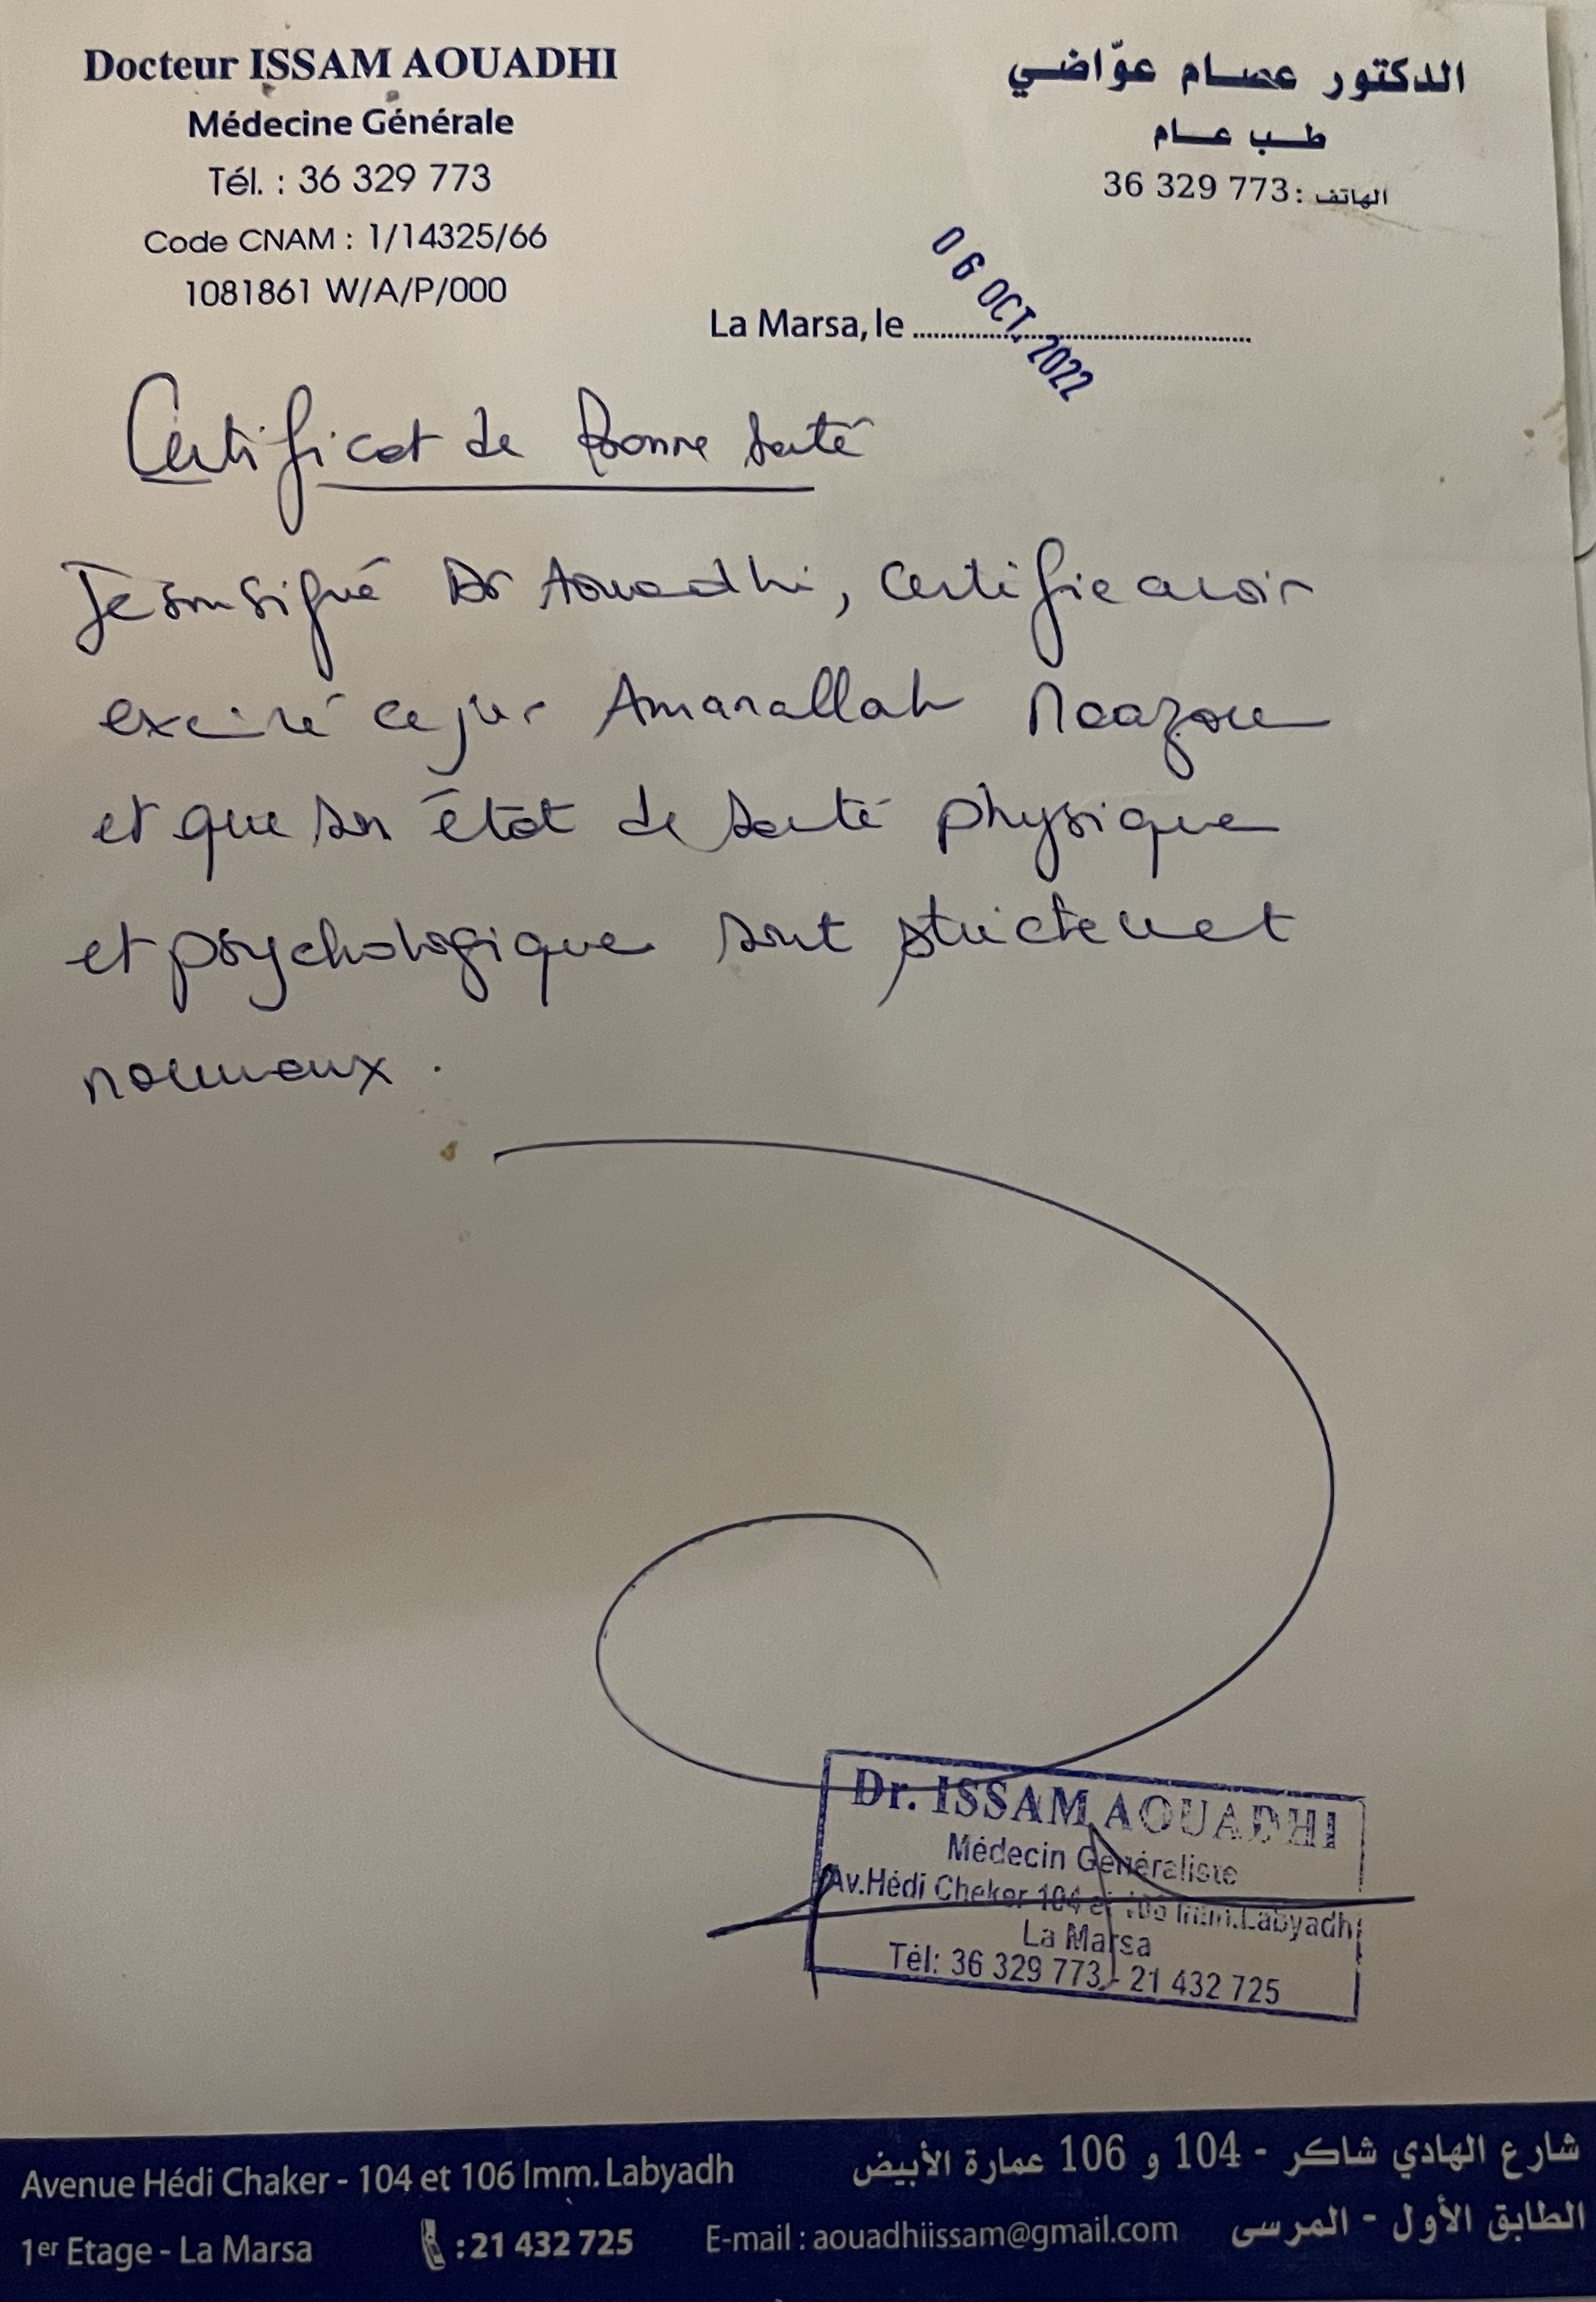 Docteur ISSAM AOUADHI
Médecine Générale
Tél. : 36 329 773
Code CNAM : 1/14325/66
1081861 W/A/P/000
الدكتور عصام عوّاضي
طب عام
الهاتف : 36 329 773
La Marsa, le
06 OCT. 2022
Certificat de bonne santé
Je soussigné Dr Aouadhi, certifie avoir
examiné ce jour Amanallah
et que son état de santé physique
et psychologique sont strictement
normaux.
Dr. ISSAM AOUADHI
Médecin Généraliste
Av.Hédi Cheker 104 et 106 Imm.Labyadh
La Marsa
Tél: 36 329 773 - 21 432 725
Avenue Hédi Chaker - 104 et 106 Imm. Labyadh
شارع الهادي شاكر - 104 و 106 عمارة الأبيض
1er Etage - La Marsa : 21 432 725 E-mail : aouadhiissam@gmail.com
الطابق الأول - المرسى